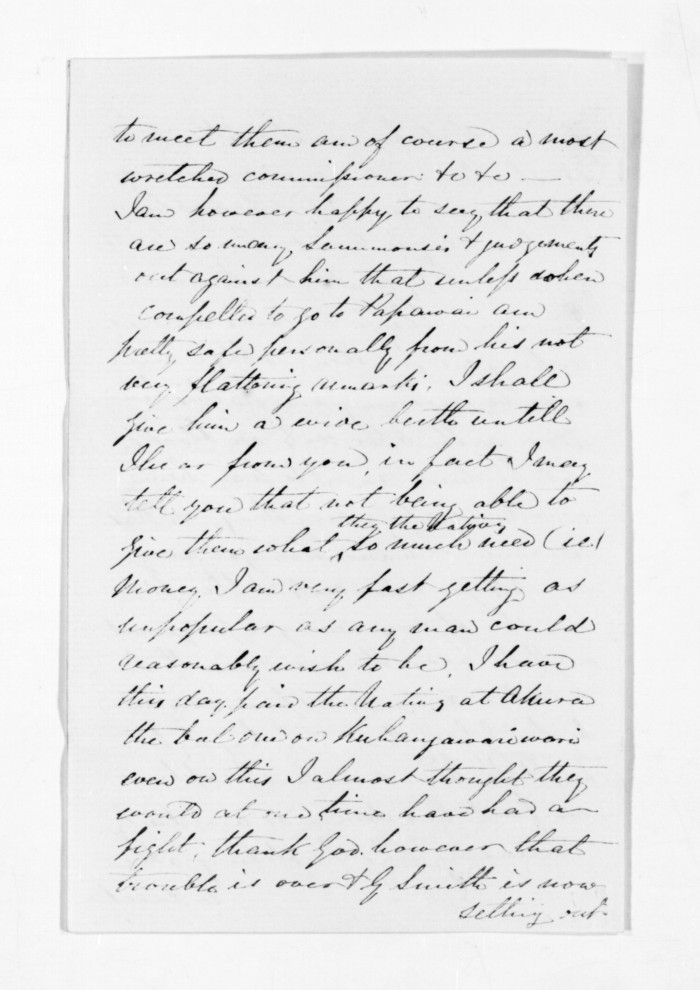 to meet them am of course a most
wretched commissioner &c &c —
I am however happy to say that there
are so many Summonses & judgements
out against him that unless when
compelled to go to Papawai am
pretty safe personally from his not
very flattering remarks. I shall
give him a wide berth untill
I hear from you, in fact I may
tell you that not being able to
they the Natives
give them what so much need (ie)
Money. I am very fast getting as
unpopular as any man could
reasonably wish to be. I have
this day paid the Natives at Akura
the bal due on
even on this I almost thought they
would at one time have had a
fight, thank God however that
trouble is over & G Smith is now
selling out